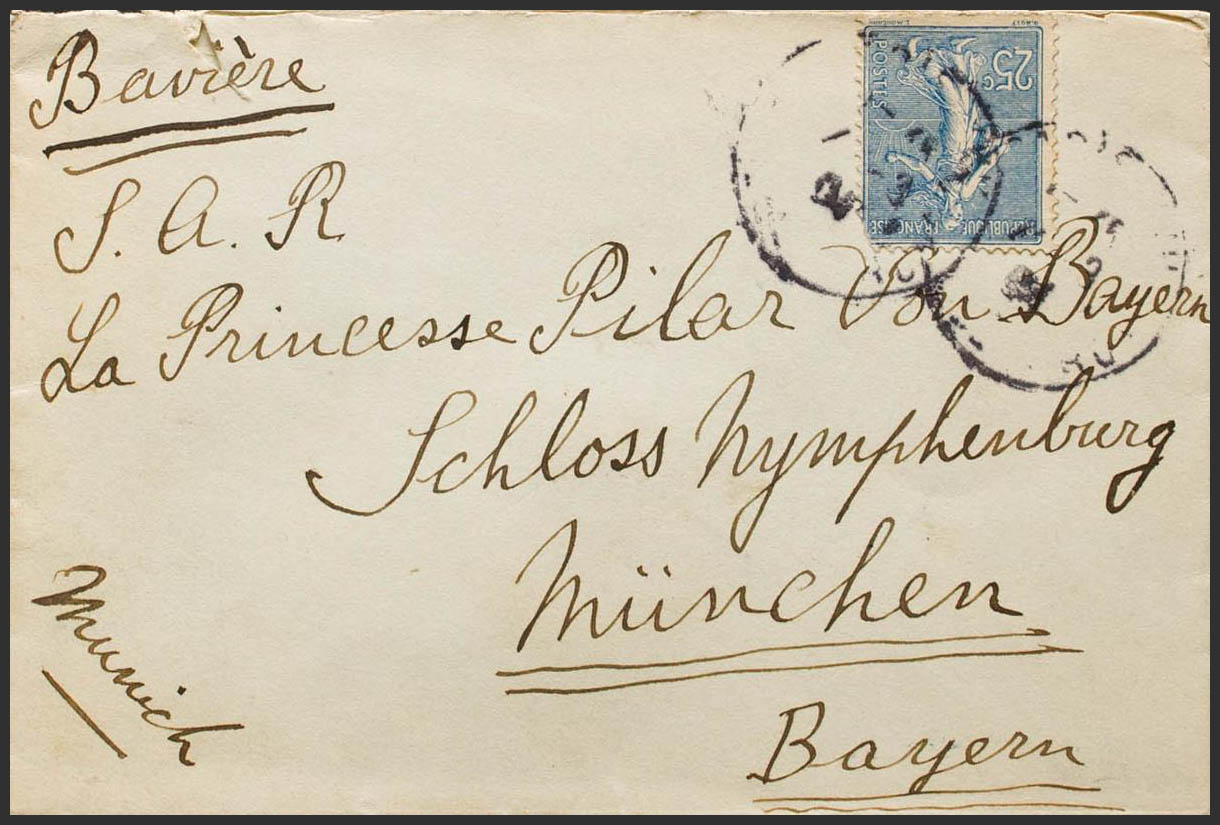 Bavière
S. A. R
La Princesse Pilar Von Bayern
Schloss Nymphenburg
München
Bayern
Munich
25c
POSTES
REPUBLIQUE FRANÇAISE